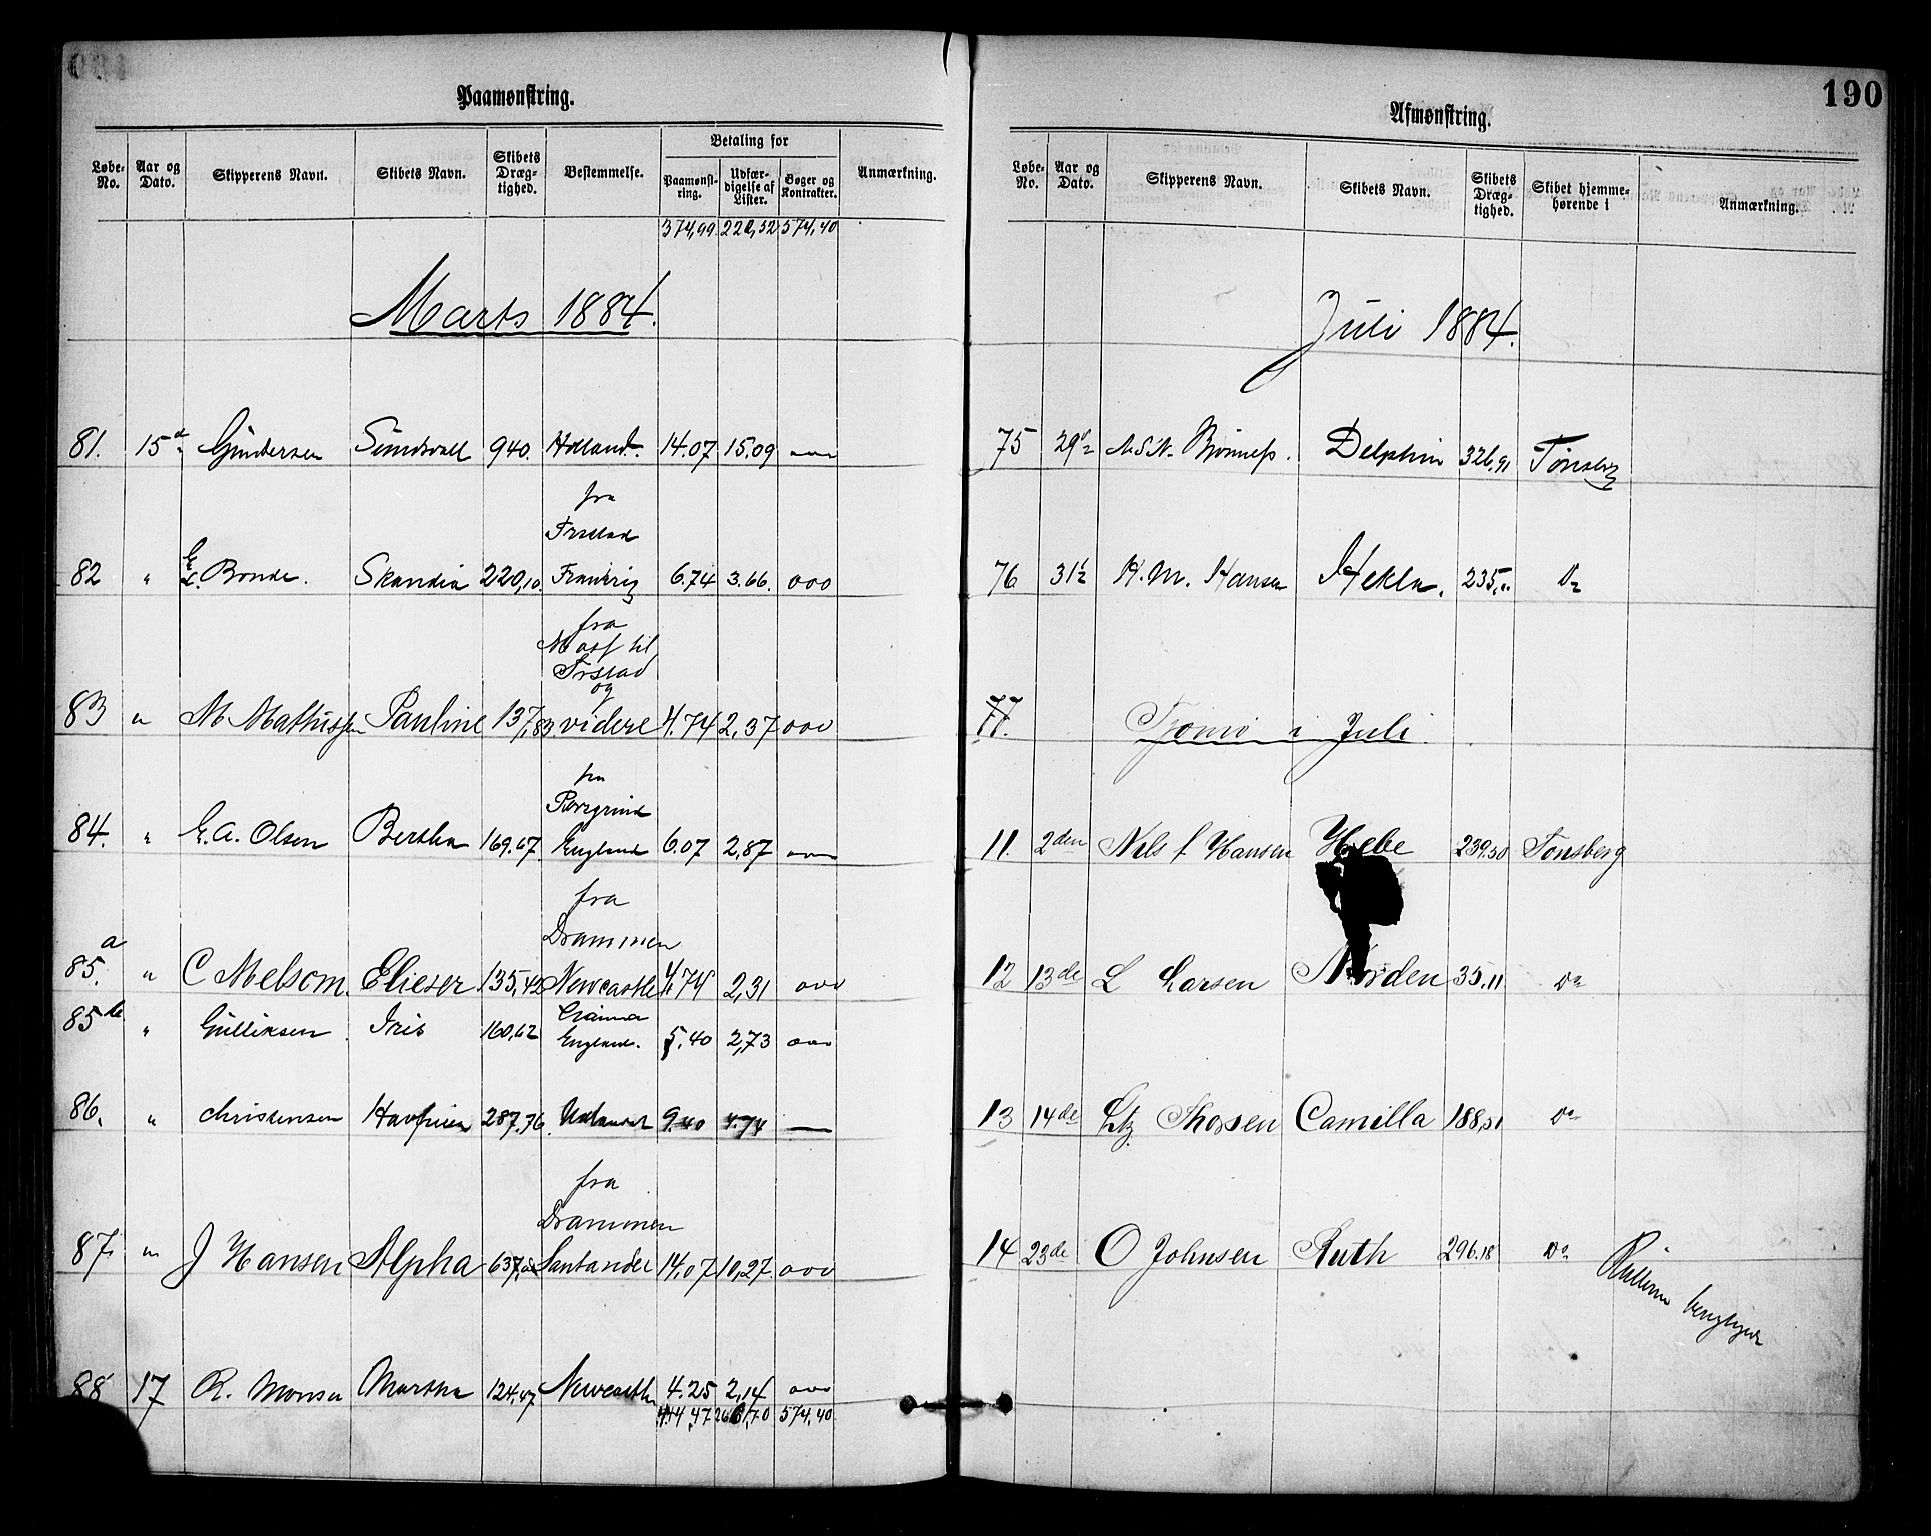 Paamønstring.
Løbe-No. Aar og Dato. Skipperens Navn. Skibets Navn. Skibets Dræg-tighed. Bestemmelse. Betaling for Paamønst-ring. Udfær-digelse af Lister. Bøger og Kontrakter. Anmærkning.
374,99 574,40
Marts 1884.
81. 15d Gundersen Sundsvall 940. Holland. 14.07 15.09 ooo
fra
Frstad
82 " Bonde. Skandia 220,10. Frankrig 6.74 3.66. ooo
fra
Moss til
Frstad
og
83 " M Mathissen Pauline 137,83 videre 4.74 2,37 ooo
fra
Porsgrund
84. " E. A. Olsen Bertha 169.67 England 6.07 2,87 ooo
fra
Drammen
85.a " C Melsom. Elieser 135,42 Newcastle 4,74 2,31 ooo
85b " Gulliksen Iris 160,62 England. 5.40 2,73 ooo
86. " Christensen Havfruen 287,76. Udlandet 9.40 4.74 —
fra
Drammen
87. " J Hansen Alpha 637, Santander 14,07 10,27. ooo
88 17 R. Monsen Martha 124,47 Newcastle 4.25 2,14 ooo
414,47 574,40
190
Afmønstring.
Løbe-No. Aar og Dato. Skipperens Navn. Skibets Navn. Skibets Dræg-tighed. Skibet hjemme-hørende i Anmærkning.
Juli 1884.
75 29 Delphin 326,91 Tønsberg
76 31 H. M. Hansen Hekla. 235, Do
77. Tjømø i Juli
11. 2den Nils f Hansen Hebe 239.50 Tønsberg
12 13de L Larsen Norden 35.11 Do
13 14de Thorsen Camilla 188,51 Do
14 23de O Johnsen Ruth 296.18 Do